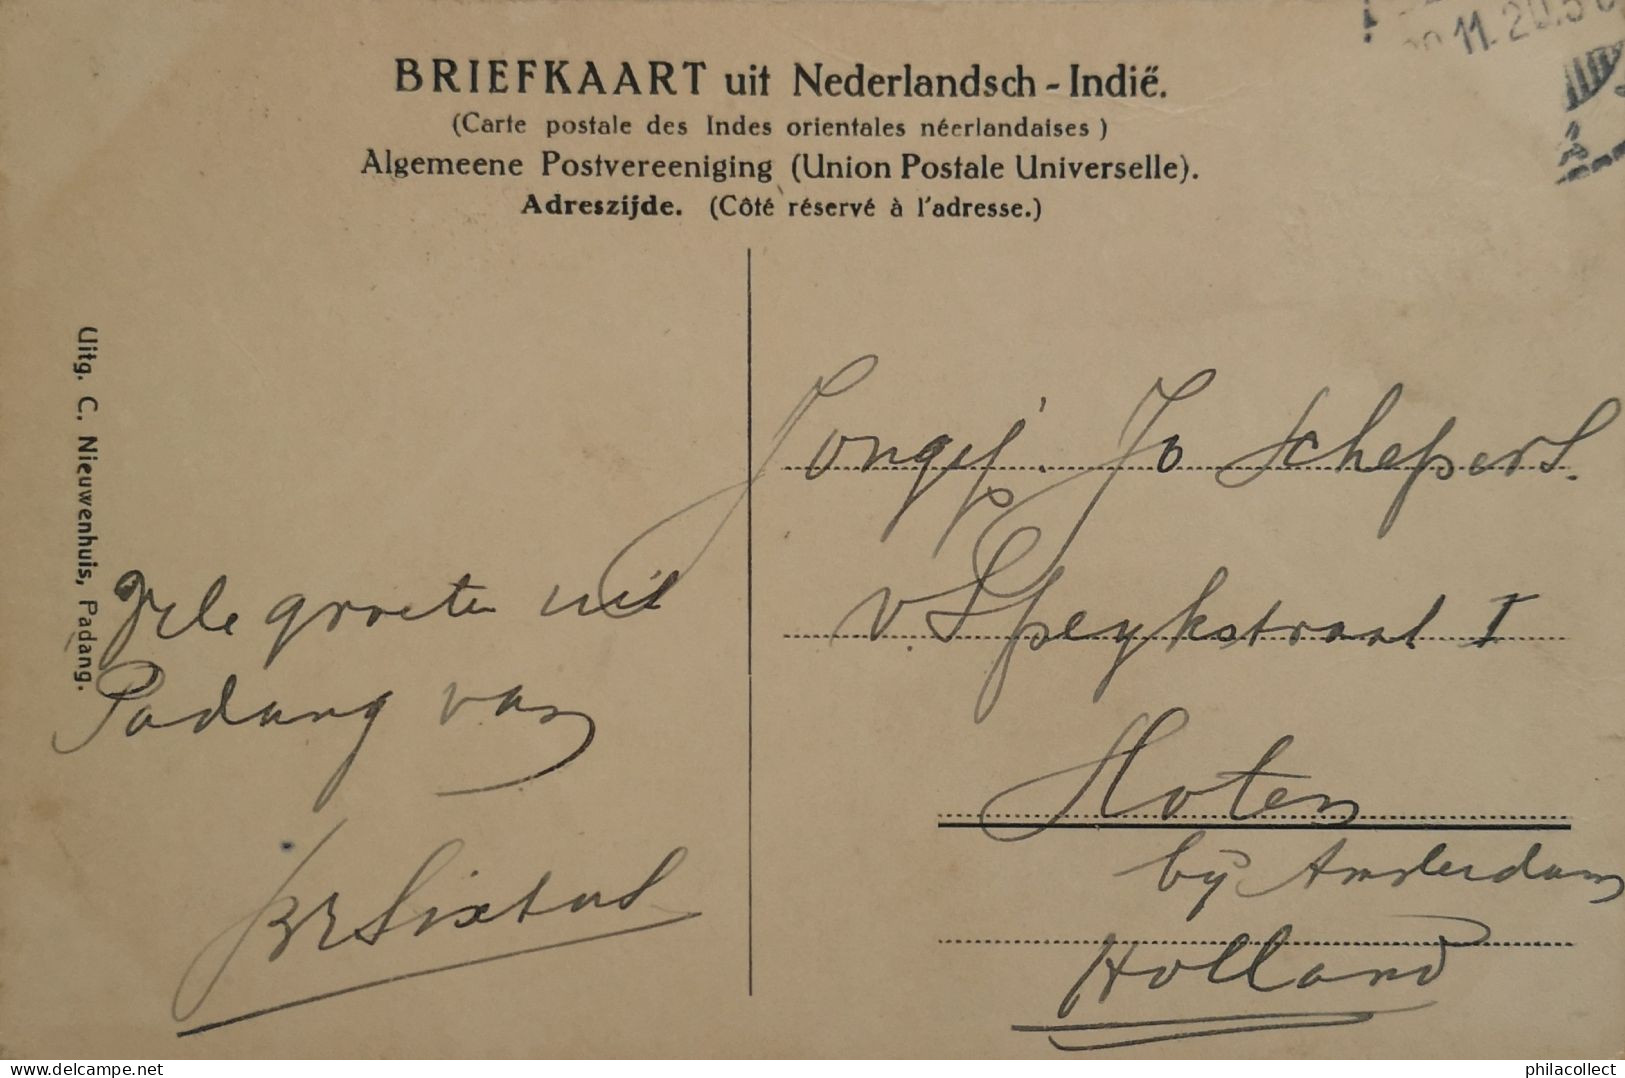 11.20.5
BRIEFKAART uit Nederlandsch-Indië.
(Carte postale des Indes orientales néerlandaises)
Algemeene Postvereeniging (Union Postale Universelle).
Adreszijde. (Côté réservé à l'adresse.)
Uitg. C. Nieuwenhuis, Padang.
Vele groeten uit
Padang van
Sixtus
Jongej. Jo Schepers.
v. Speykstraat I
Sloten
bij Amsterdam
Holland
delcampe.net
philacollect